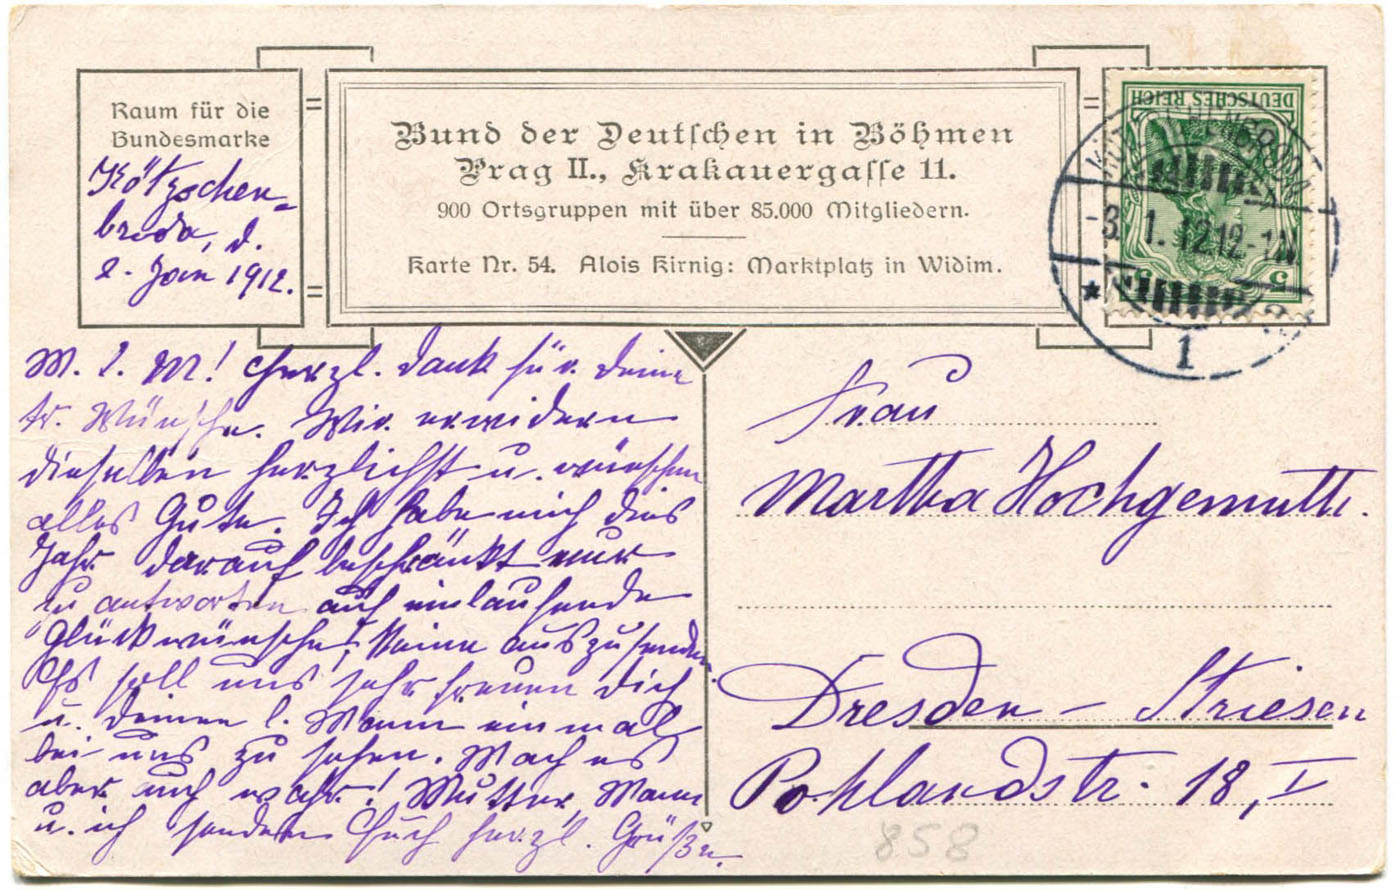 Raum für die
Bundesmarke
Kötzschen-
broda, d.
2. Jan 1912.
Bund der Deutschen in Böhmen
Prag II., Krakauergasse 11.
900 Ortsgruppen mit über 85.000 Mitgliedern.
Karte Nr. 54. Alois Kirnig: Marktplatz in Widim.
DEUTSCHES REICH
5 5
-3.1.12.12-1N.
* 1
M. l. M! Herzl. Dank für Deine
tr. Wünsche. Wir erwidern
dieselben herzlichst u. wünschen
alles Gute. Ich habe mich dies
Jahr darauf beschränkt nur
zu antworten auf einlaufende
Glückwünsche, keine auszusenden.
Es soll uns sehr freuen Dich
u. Deinen l. Mann einmal
bei uns zu sehen. Mach es
aber auch wahr! Mutter, Mann
u. ich senden Euch herzl. Grüße.
Frau
Martha Hochgemuth.
Dresden - Striesen
Pohlandstr. 18, I
858